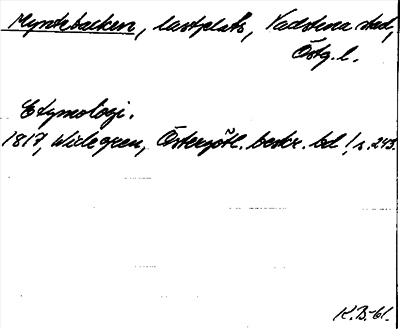 Myntebacken, lastplats, Vadstena stad,
Östg. l.
Etymologi.
1817, Widegren, Östergötl. beskr. bd 1, s. 243.
K.B-61.